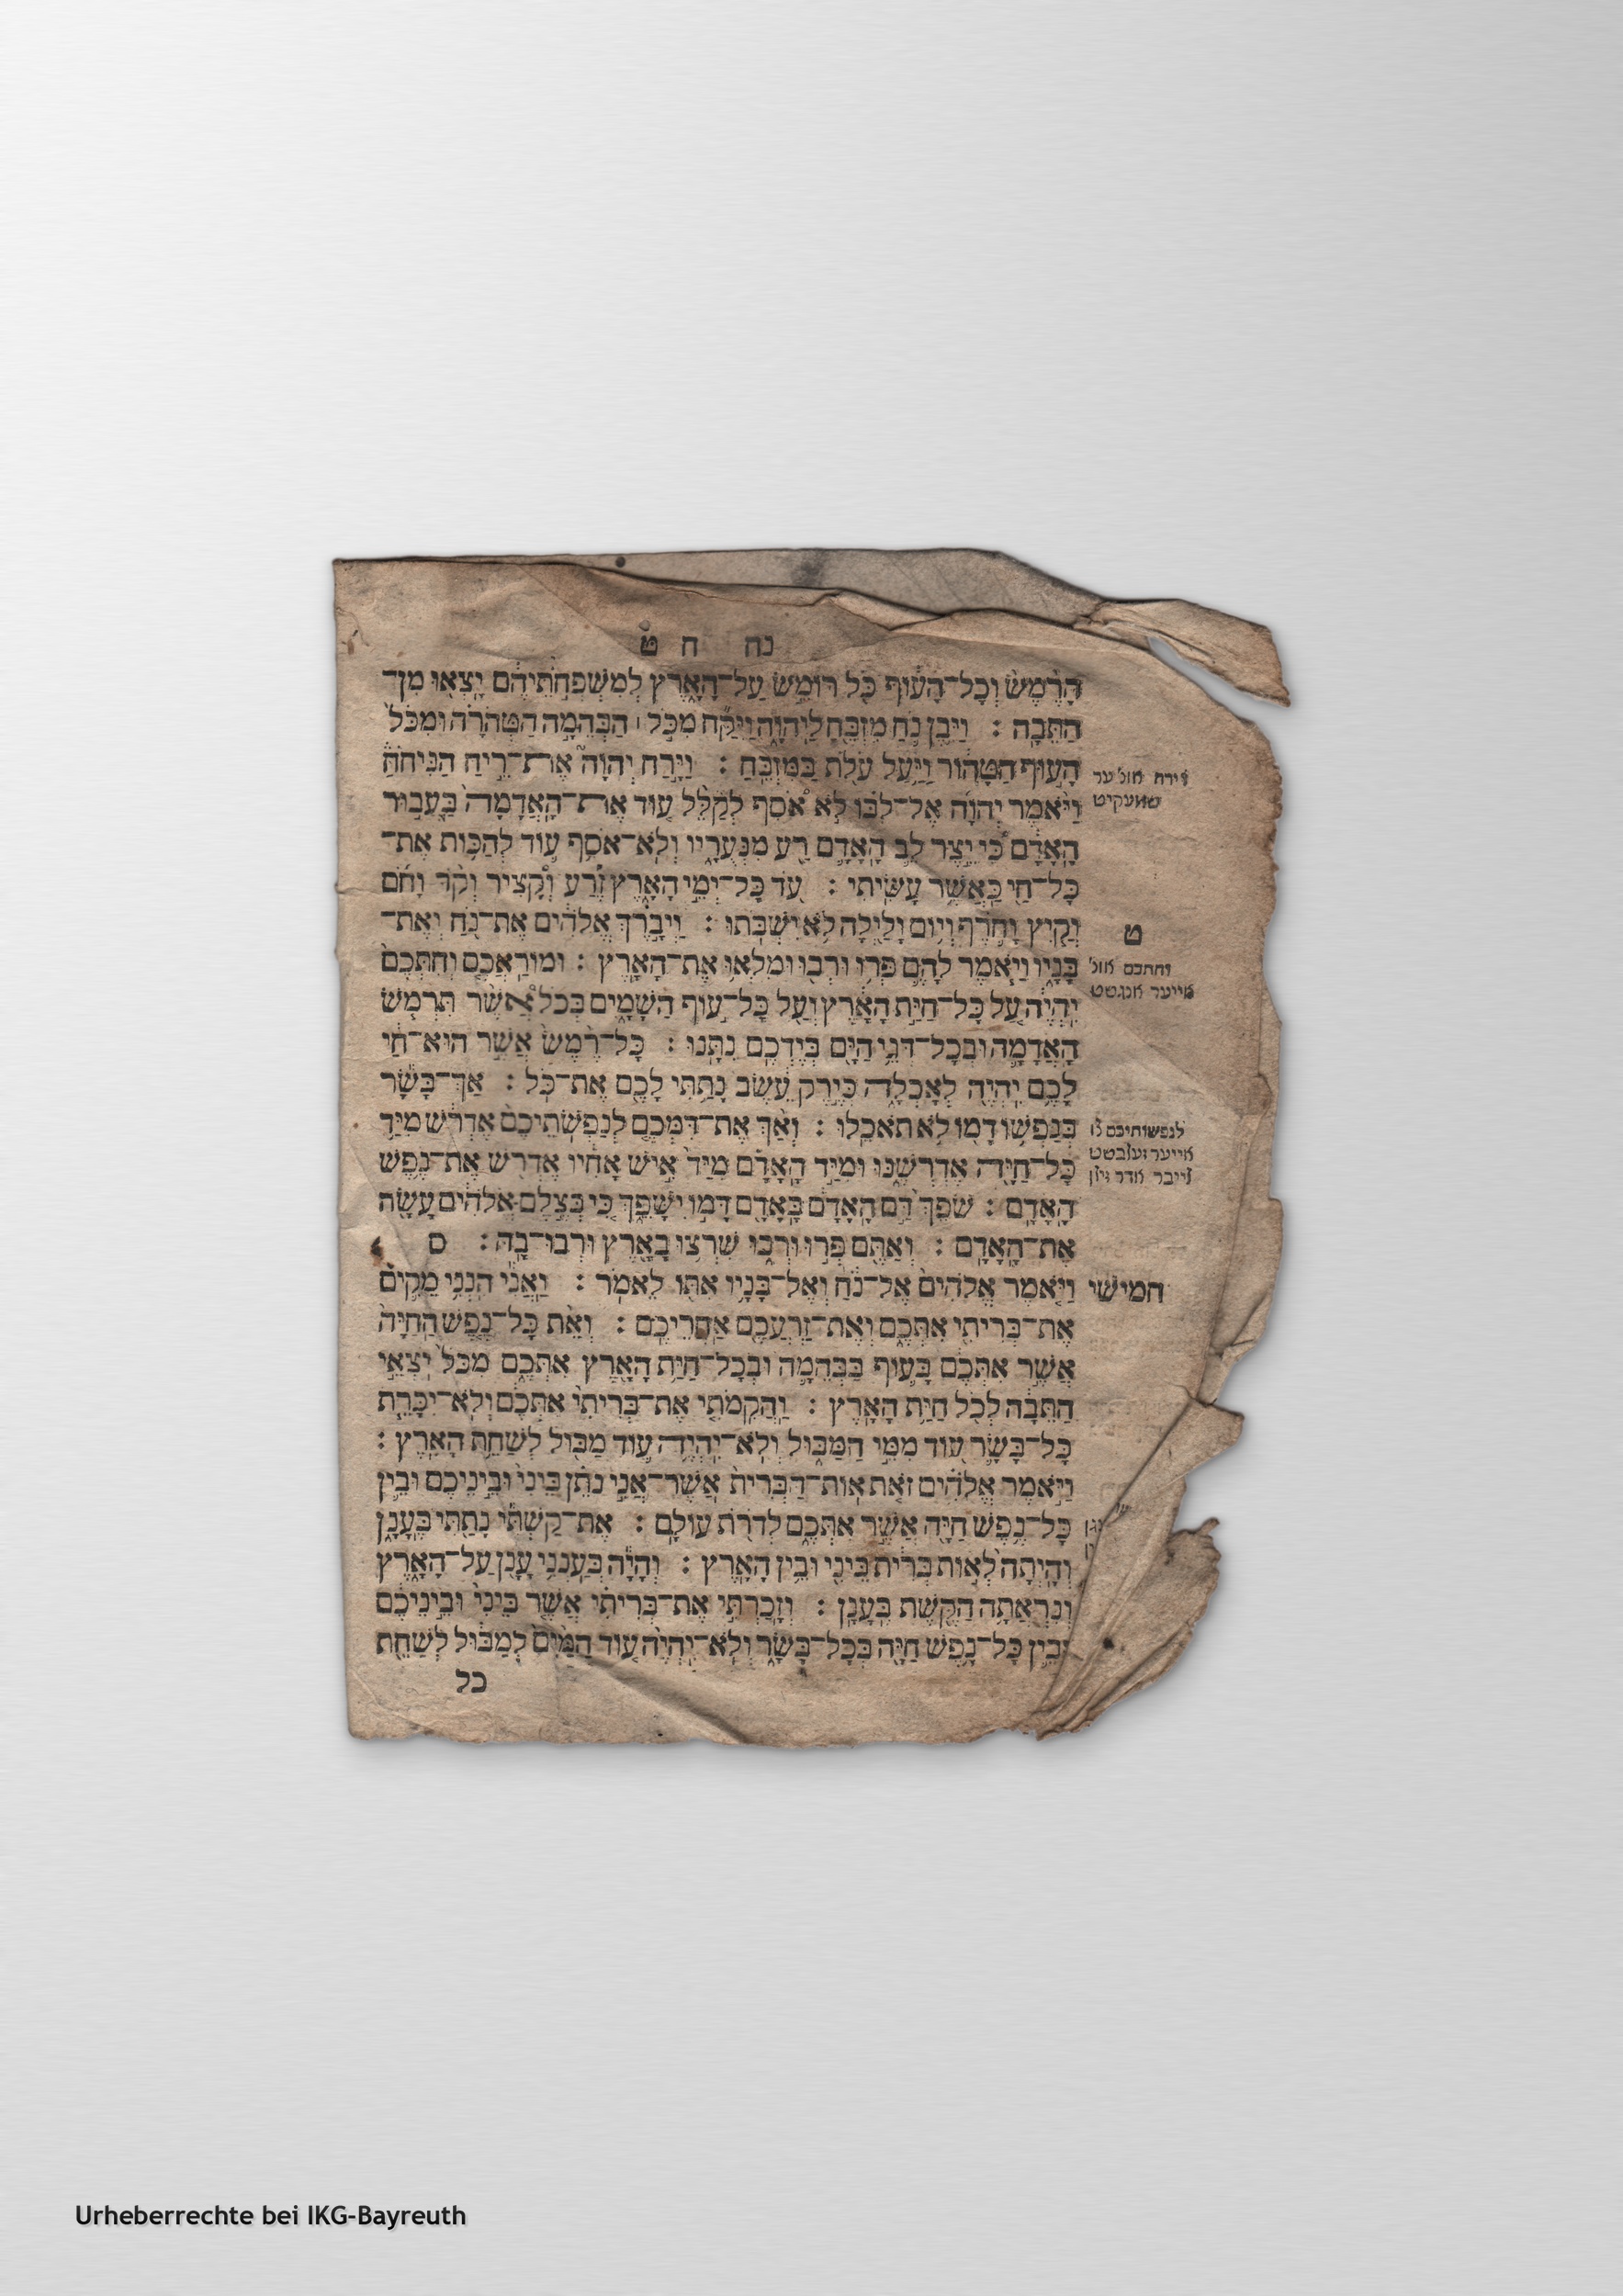 נח ח ט
הָרֶ֙מֶשׂ֙ וְכָל־הָע֔וֹף כֹּ֖ל רוֹמֵ֣שׂ עַל־הָאָ֑רֶץ לְמִשְׁפְּחֹ֣תֵיהֶ֔ם יָצְא֖וּ מִן־
הַתֵּבָֽה : וַיִּ֥בֶן נֹ֛חַ מִזְבֵּ֖חַ לַֽיהוָ֑ה וַיִּקַּ֞ח מִכֹּ֣ל ׀ הַבְּהֵמָ֣ה הַטְּהֹרָ֗ה וּמִכֹּל֙
הָע֣וֹף הַטָּה֔וֹר וַיַּ֥עַל עֹלֹ֖ת בַּמִּזְבֵּֽחַ : וַיָּ֣רַח יְהוָה֮ אֶת־רֵ֣יחַ הַנִּיחֹחַ֒
וירח אונ׳ ער
שמעקיט
וַיֹּ֨אמֶר יְהוָ֜ה אֶל־לִבּ֗וֹ לֹֽא אֹ֠סִף לְקַלֵּ֨ל ע֤וֹד אֶת־הָֽאֲדָמָה֙ בַּעֲב֣וּר
הָֽאָדָ֔ם כִּ֠י יֵ֣צֶר לֵ֧ב הָאָדָ֛ם רַ֖ע מִנְּעֻרָ֑יו וְלֹֽא־אֹסִ֥ף ע֛וֹד לְהַכּ֥וֹת אֶת־
כָּל־חַ֖י כַּֽאֲשֶׁ֥ר עָשִֽׂיתִי : עֹ֖ד כָּל־יְמֵ֣י הָאָ֑רֶץ זֶ֡רַע וְ֠קָצִיר וְקֹ֨ר וָחֹ֜ם
וְקַ֧יִץ וָחֹ֛רֶף וְי֥וֹם וָלַ֖יְלָה לֹ֥א יִשְׁבֹּֽתוּ : וַיְבָ֣רֶךְ אֱלֹהִ֔ים אֶת־נֹ֖חַ וְאֶת־
ט
בָּנָ֑יו וַיֹּ֧אמֶר לָהֶ֛ם פְּר֥וּ וּרְב֖וּ וּמִלְא֥וּ אֶת־הָאָֽרֶץ : וּמוֹרַאֲכֶ֤ם וְחִתְּכֶם֙
וחתכם אונ׳
אייער אנגשט
יִֽהְיֶ֔ה עַ֚ל כָּל־חַיַּ֣ת הָאָ֔רֶץ וְעַ֖ל כָּל־ע֣וֹף הַשָּׁמָ֑יִם בְּכֹל֩ אֲשֶׁ֨ר תִּרְמֹ֧שׂ
הָֽאֲדָמָ֛ה וּֽבְכָל־דְּגֵ֥י הַיָּ֖ם בְּיֶדְכֶ֥ם נִתָּֽנוּ : כָּל־רֶ֙מֶשׂ֙ אֲשֶׁ֣ר הוּא־חַ֔י
לָכֶ֥ם יִהְיֶ֖ה לְאָכְלָ֑ה כְּיֶ֣רֶק עֵ֔שֶׂב נָתַ֥תִּי לָכֶ֖ם אֶת־כֹּֽל : אַךְ־בָּשָׂ֕ר
בְּנַפְשׁ֥וֹ דָמ֖וֹ לֹ֥א תֹאכֵֽלוּ : וְאַ֨ךְ אֶת־דִּמְכֶ֤ם לְנַפְשֹֽׁתֵיכֶם֙ אֶדְרֹ֔שׁ מִיַּ֥ד
לנפשותיכם צו
אייער זעלבשט
לייבר אודר ניזן
כָּל־חַיָּ֖ה אֶדְרְשֶׁ֑נּוּ וּמִיַּ֣ד הָֽאָדָ֗ם מִיַּד֙ אִ֣ישׁ אָחִ֔יו אֶדְרֹ֖שׁ אֶת־נֶ֥פֶשׁ
הָֽאָדָֽם : שֹׁפֵךְ֙ דַּ֣ם הָֽאָדָ֔ם בָּֽאָדָ֖ם דָּמ֣וֹ יִשָּׁפֵ֑ךְ כִּ֚י בְּצֶ֣לֶם אֱלֹהִ֔ים עָשָׂ֖ה
אֶת־הָאָדָֽם : וְאַתֶּ֖ם פְּר֣וּ וּרְב֑וּ שִׁרְצ֥וּ בָאָ֖רֶץ וּרְבוּ־בָֽהּ : ס
חמישי וַיֹּ֤אמֶר אֱלֹהִים֙ אֶל־נֹ֔חַ וְאֶל־בָּנָ֥יו אִתּ֖וֹ לֵאמֹֽר : וַאֲנִ֕י הִנְנִ֥י מֵקִ֛ים
אֶת־בְּרִיתִ֖י אִתְּכֶ֑ם וְאֶֽת־זַרְעֲכֶ֖ם אַֽחֲרֵיכֶֽם : וְאֵ֨ת כָּל־נֶ֤פֶשׁ הַֽחַיָּה֙
אֲשֶׁ֣ר אִתְּכֶ֔ם בָּע֧וֹף בַּבְּהֵמָ֛ה וּֽבְכָל־חַיַּ֥ת הָאָ֖רֶץ אִתְּכֶ֑ם מִכֹּל֙ יֹצְאֵ֣י
הַתֵּבָ֔ה לְכֹ֖ל חַיַּ֥ת הָאָֽרֶץ : וַהֲקִמֹתִ֤י אֶת־בְּרִיתִי֙ אִתְּכֶ֔ם וְלֹֽא־יִכָּרֵ֧ת
כָּל־בָּשָׂ֛ר ע֖וֹד מִמֵּ֣י הַמַּבּ֑וּל וְלֹֽא־יִהְיֶ֥ה ע֛וֹד מַבּ֖וּל לְשַׁחֵ֥ת הָאָֽרֶץ :
וַיֹּ֣אמֶר אֱלֹהִ֗ים זֹ֤את אֽוֹת־הַבְּרִית֙ אֲשֶׁר־אֲנִ֣י נֹתֵ֗ן בֵּינִי֙ וּבֵ֣ינֵיכֶ֔ם וּבֵ֛ין
כָּל־נֶ֥פֶשׁ חַיָּ֖ה אֲשֶׁ֣ר אִתְּכֶ֑ם לְדֹרֹ֖ת עוֹלָֽם : אֶת־קַשְׁתִּ֕י נָתַ֖תִּי בֶּֽעָנָ֑ן
וְהָֽיְתָה֙ לְא֣וֹת בְּרִ֔ית בֵּינִ֖י וּבֵ֥ין הָאָֽרֶץ : וְהָיָ֕ה בְּעַֽנְנִ֥י עָנָ֖ן עַל־הָאָ֑רֶץ
וְנִרְאֲתָ֥ה הַקֶּ֖שֶׁת בֶּעָנָֽן : וְזָכַרְתִּ֣י אֶת־בְּרִיתִ֗י אֲשֶׁ֤ר בֵּינִי֙ וּבֵ֣ינֵיכֶ֔ם
וּבֵ֛ין כָּל־נֶ֥פֶשׁ חַיָּ֖ה בְּכָל־בָּשָׂ֑ר וְלֹֽא־יִֽהְיֶ֨ה ע֤וֹד הַמַּ֙יִם֙ לְמַבּ֔וּל לְשַׁחֵ֖ת
כל
Urheberrechte bei IKG-Bayreuth